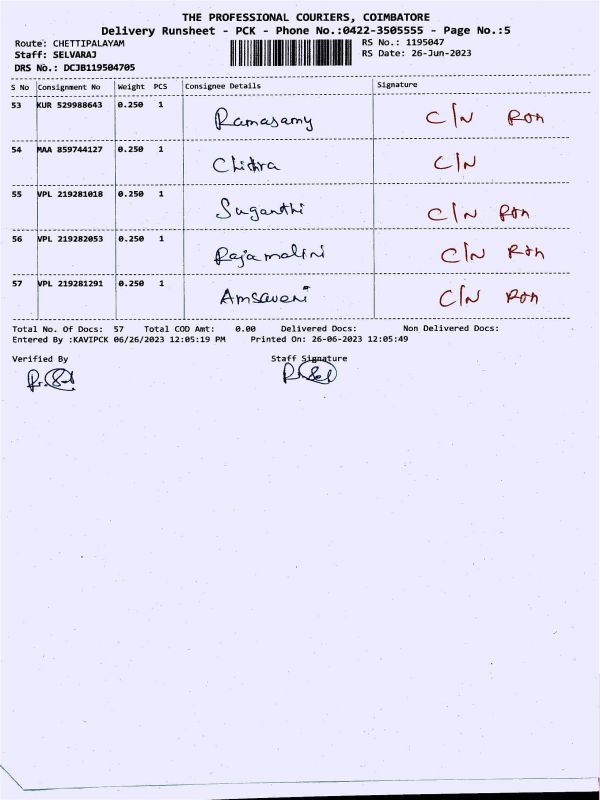 THE PROFESSIONAL COURIERS, COIMBATORE
Delivery Runsheet - PCK - Phone No.:0422-3505555 - Page No.:5
Route: CHETTIPALAYAM RS No.: 1195047
Staff: SELVARAJ RS Date: 26-Jun-2023
DRS No.: DCJB119504705
S No Consignment No Weight PCS Consignee Details Signature
53 KUR 529988643 0.250 1 Ramasamy C/N
54 MAA 859744127 0.250 1 Chithra C/N
55 VPL 219281018 0.250 1 Suganthi C/N
56 VPL 219282053 0.250 1 Rajamalini C/N
57 VPL 219281291 0.250 1 Amsaveni C/N
Total No. Of Docs: 57 Total COD Amt: 0.00 Delivered Docs: Non Delivered Docs:
Entered By :KAVIPCK 06/26/2023 12:05:19 PM Printed On: 26-06-2023 12:05:49
Verified By Staff Signature